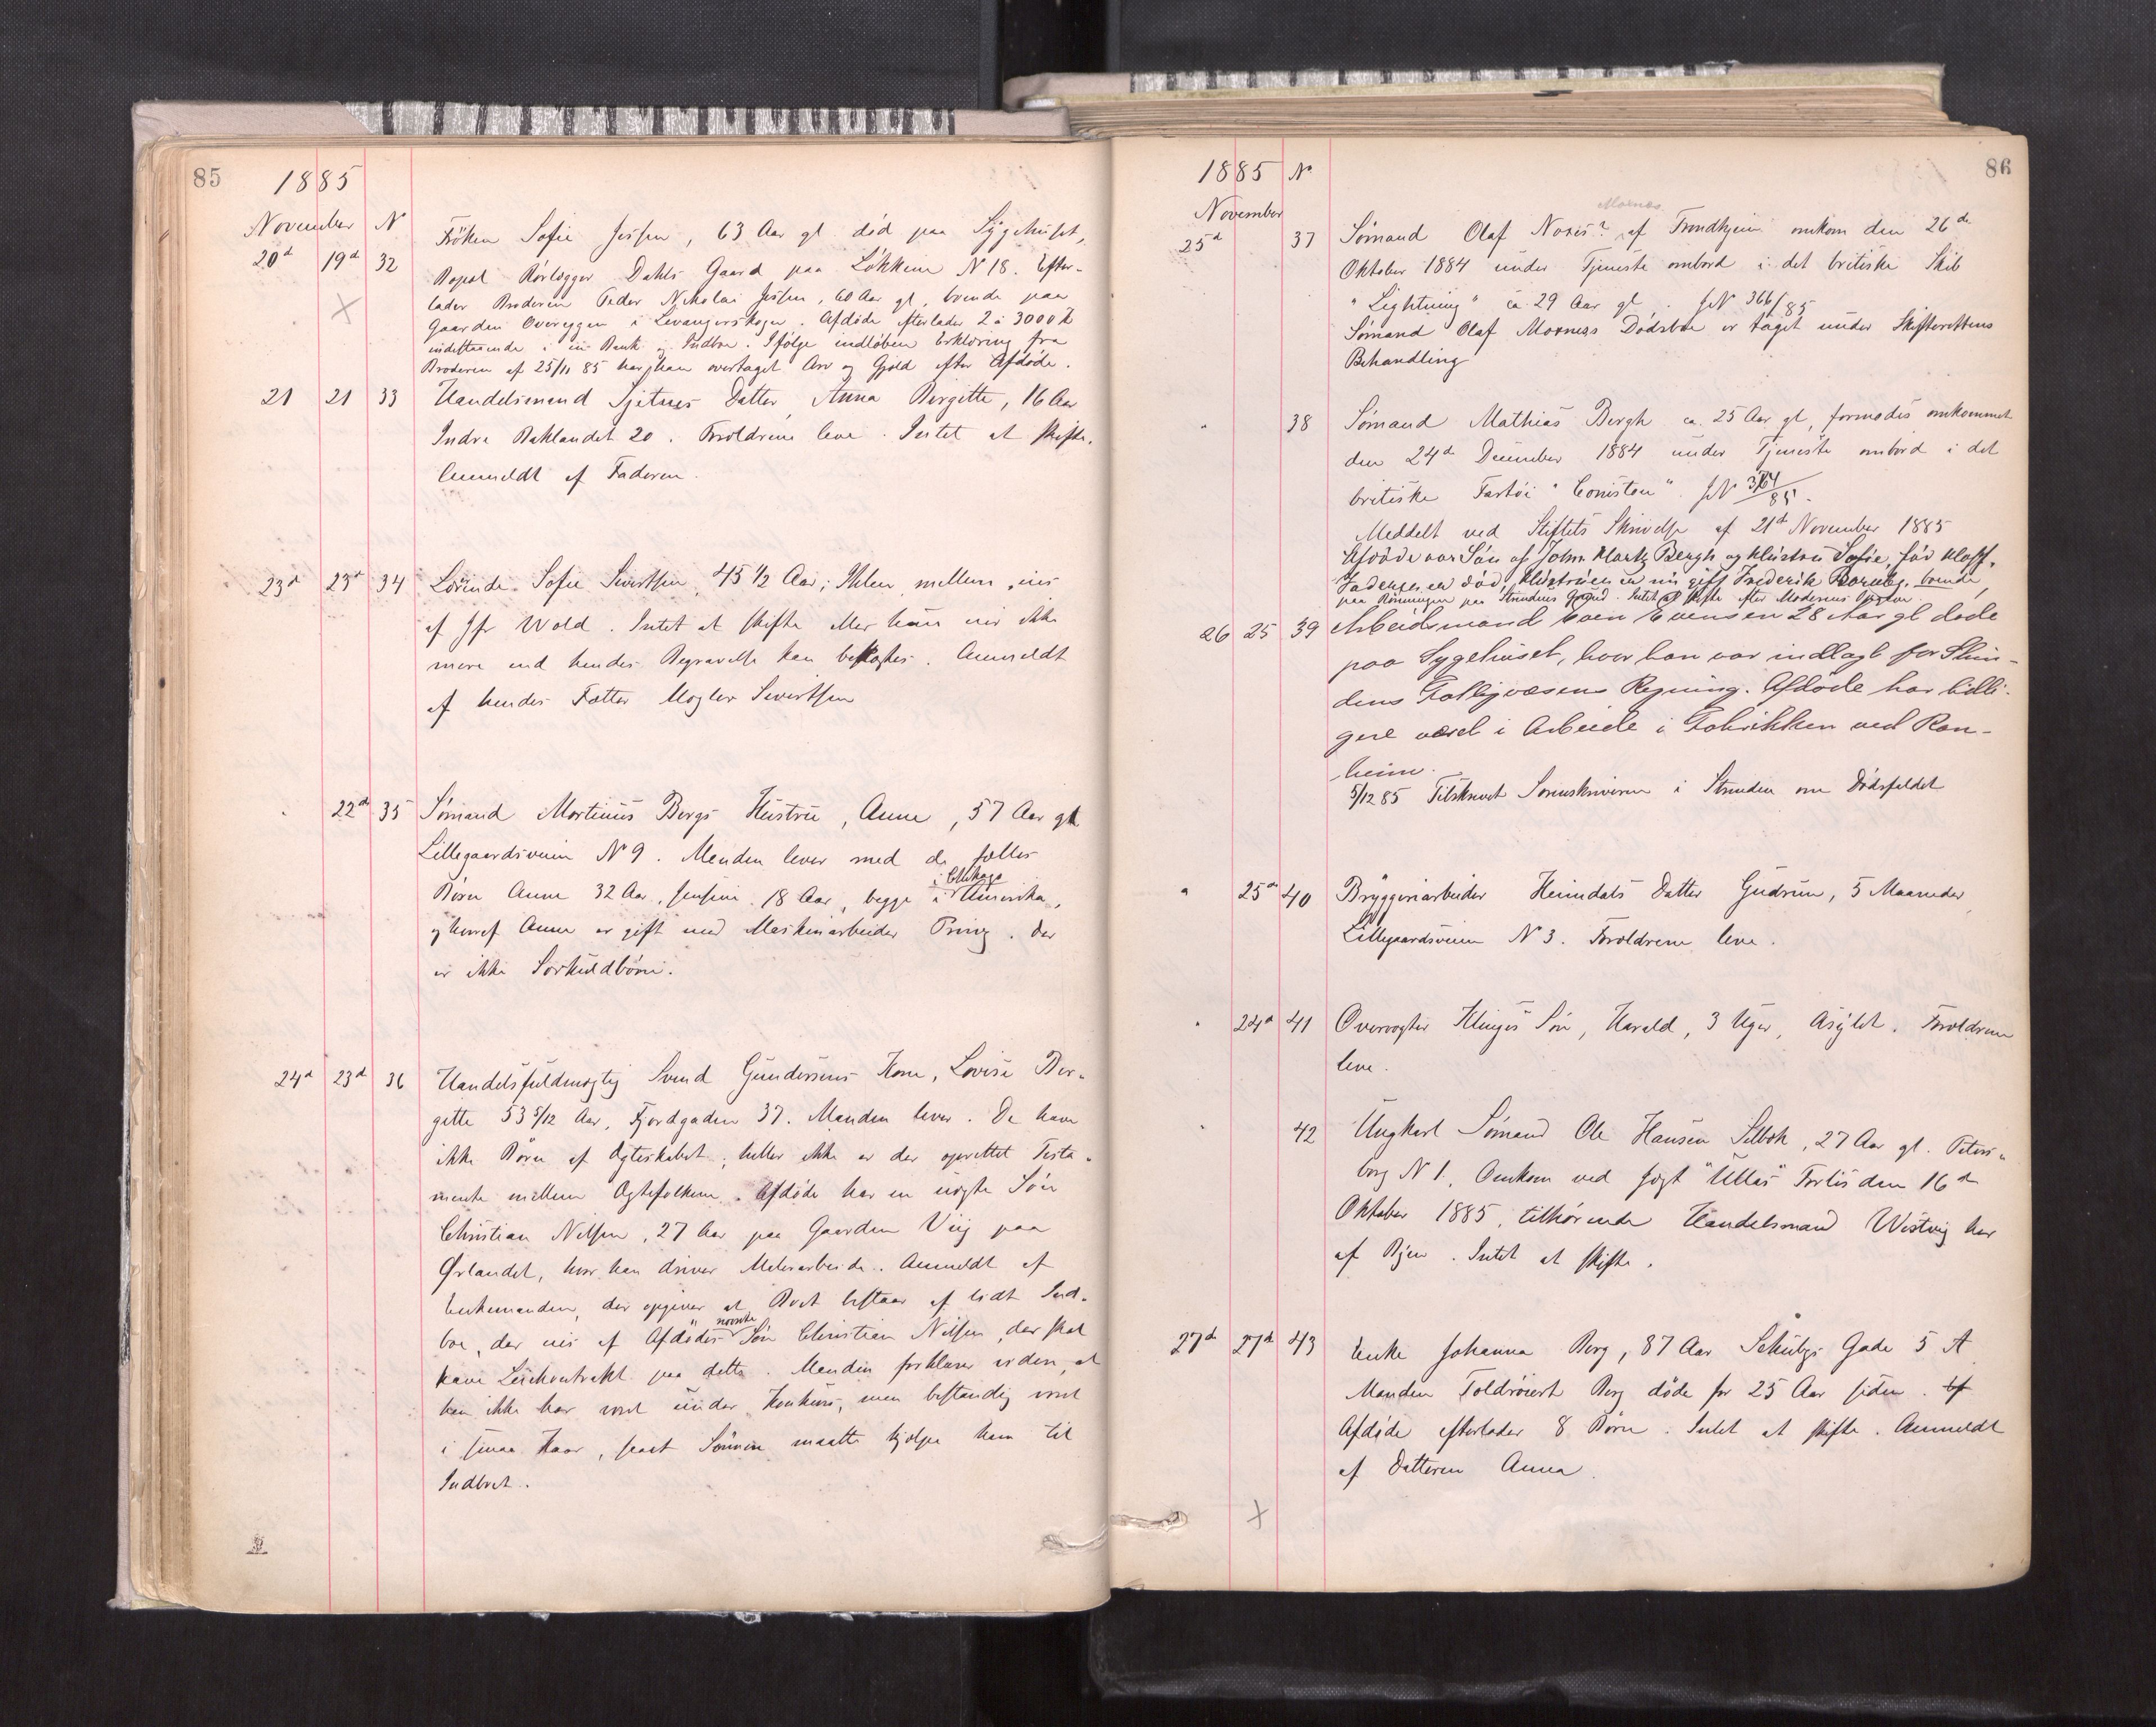 85
1885
November N
20d 19d 32 Fröken Sofie Jessen, 63 Aar gl död paa Sygehuset,
Bopæl Rørlægger Dahls Gaard paa Løkken N 18. Efter-
lader Broderen Peder Nikolai Jessen, 60 Aar gl, boende paa
Gaarden Overeggen i Levangerskogn. Afdøde efterlader 2 à 3000 K
indestaaende i en Bank og Indbo. Ifølge indløben Erklæring fra
Broderen af 25/11 85 har han overtaget Arv og Gjæld efter Afdøde.
21 21 33 Handelsmand Sjetnes Datter, Anna Birgitte, 16 Aar
Indre Baklandet 20. Forældrene leve. Intet at skifte.
Anmeldt af Faderen.
23d 23d 34 Lovinde Sofie Sivertsen, 45 1/2 Aar; Ihlen, mellem eies
af Jfr Wold. Intet at skifte eller han ved ikke
mere end hendes Begravelse kan bekostes. Anmeldt
af hendes Fætter Sivertsen
" 22d 35 Sømand Martinus Bergs Hustru, Anne, 57 Aar gl
Lillegaardsveien N 9. Manden lever med de fælles
Børn Anne 32 Aar, Jensine 18 Aar, begge i Amerika,
i Chikago
og hvoraf Anne er gift med Maskinarbeider Pring. Der
er ikke Særkuldbørn.
24d 23d 36 Handelsfuldmægtig Svend Gundersens Kone, Lovise Ber-
gitte 53 5/12 Aar, Fjordgaden 37. Manden lever. De have
ikke Børn af Ægteskabet; heller ikke er der oprettet Testa-
mente mellem Ægtefolkene. Afdøde har en uægte Søn
Christian Nilsen, 27 Aar paa Gaarden Viig paa
Ørlandet, hvor han driver Malerarbeide. Anmeldt af
Enkemanden, der opgiver at Boet bestaar af lidt Ind-
bo, der eies af Afdødes Søn Christian Nilsen, der skal
nævnte
have Leiekontrakt paa dette. Manden forklarer viden, at
han ikke har været under Konkurs, men bestandig været
i smaa Kaar, saat Sønnen maatte hjælpe ham til
Indboet.
86
1885 N
November
Moxnes
25d 37 Sømand Olaf Noxis? af Trondhjem omkom den 26de
Oktober 1884 under Tjeneste ombord i det britiske Skib
"Lightning" ca 29 Aar gl. JN 366/85
Sømand Olaf Moxness Dødsbo er taget under Skifterettens
Behandling
" 38 Sømand Mathias Bergh ca. 25 Aar gl, formodes omkommet
den 24d December 1884 under Tjeneste ombord i det
britiske Fartøi "Coniston". JN 364/85.
Meddelt ved Stiftets Skrivelse af 21d November 1885
Afdøde var Søn af John Martz Bergh og Hustru Sofie, fød Kloss.
Faderen er død, Hustruen er nu gift Frederik Borneby, boende
paa Rønningen paa Strindens Grund. Intet at skifte efter Moderens Opgave.
26 25 39 Arbeidsmand Even Evensen 28 Aar gl døde
paa Sygehuset, hvor han var indlagt for Strin-
dens Fattigvæsens Regning. Afdøde har tidli-
gere været i Arbeide i Fabrikken ved Ran-
heim.
5/12 85 Tilskrevet Sorenskriveren i Strinden om Dødsfaldet
" 25de 40 Bryggeriarbeider Heimdals Datter Gudrun, 5 Maaneder,
Lillegaardsveien N 3. Forældrene leve.
" 24d 41 Overvogter Klinges Søn, Harald, 3 Uger, Asylet. Forældrene
leve.
" 42 Ungkarl Sømand Ole Hansen Selbek, 27 Aar gl. Peters-
borg N 1. Omkom ved Jagt "Ullas" Forlis den 16d
Oktober 1885, tilhørende Handelsmand Westvig her
af Byen. Intet at skifte.
27d 27d 43 Enke Johanna Berg, 87 Aar Schultzs Gade 5 A
Manden Toldrorert Berg døde for 25 Aar siden.
Afdøde efterlader 8 Børn. Intet at skifte. Anmeldt
af Datteren Anna.